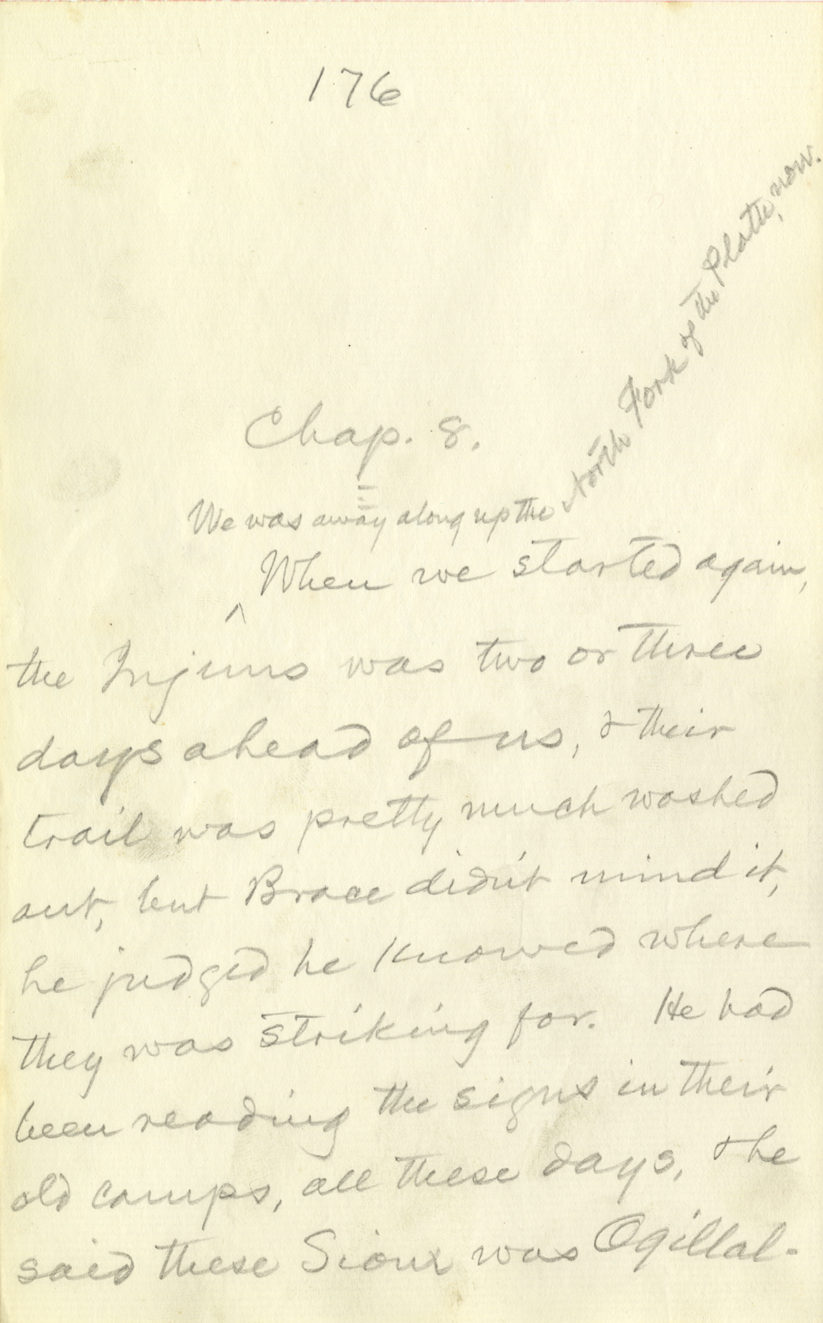 176
Chap. 8.
We was away along up the North Fork of the Platte, now.
^ When we started again,
the Injuns was two or three
days ahead of us, & their
trail was pretty much washed
out, but Brace didn't mind it,
he judged he knowed where
they was striking for. He had
been reading the signs in their
old camps, all these days, & he
said these Sioux was Ogillal-